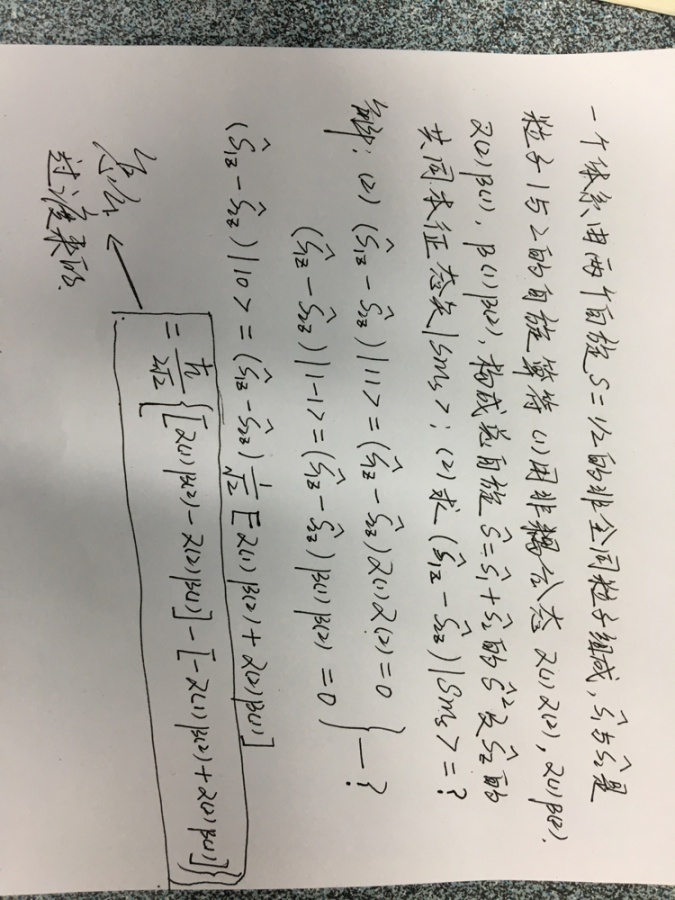 一个体系由两个自旋 S=1/2 的非全同粒子组成, ŝ₁与ŝ₂是
粒子1与2的自旋算符 (1)用非耦合态 α(1)α(2), α(1)β(2),
α(2)β(1), β(1)β(2), 构成总自旋 Ŝ=ŝ₁+ŝ₂ 的 Ŝ² 及 Ŝz 的
共同本征态矢|Sms>; (2)求 (Ŝ1z-Ŝ2z)|Sms>=?
解: (2) (Ŝ1z-Ŝ2z)|11>=(Ŝ1z-Ŝ2z)α(1)α(2)=0
(Ŝ1z-Ŝ2z)|1-1>=(Ŝ1z-Ŝ2z)β(1)β(2)=0 } —?
(Ŝ1z-Ŝ2z)|10>=(Ŝ1z-Ŝ2z)1/√2[α(1)β(2)+α(2)β(1)]
=ħ/2√2{[α(1)β(2)-α(2)β(1)]-[-α(1)β(2)+α(2)β(1)]}
怎么
过渡来的.